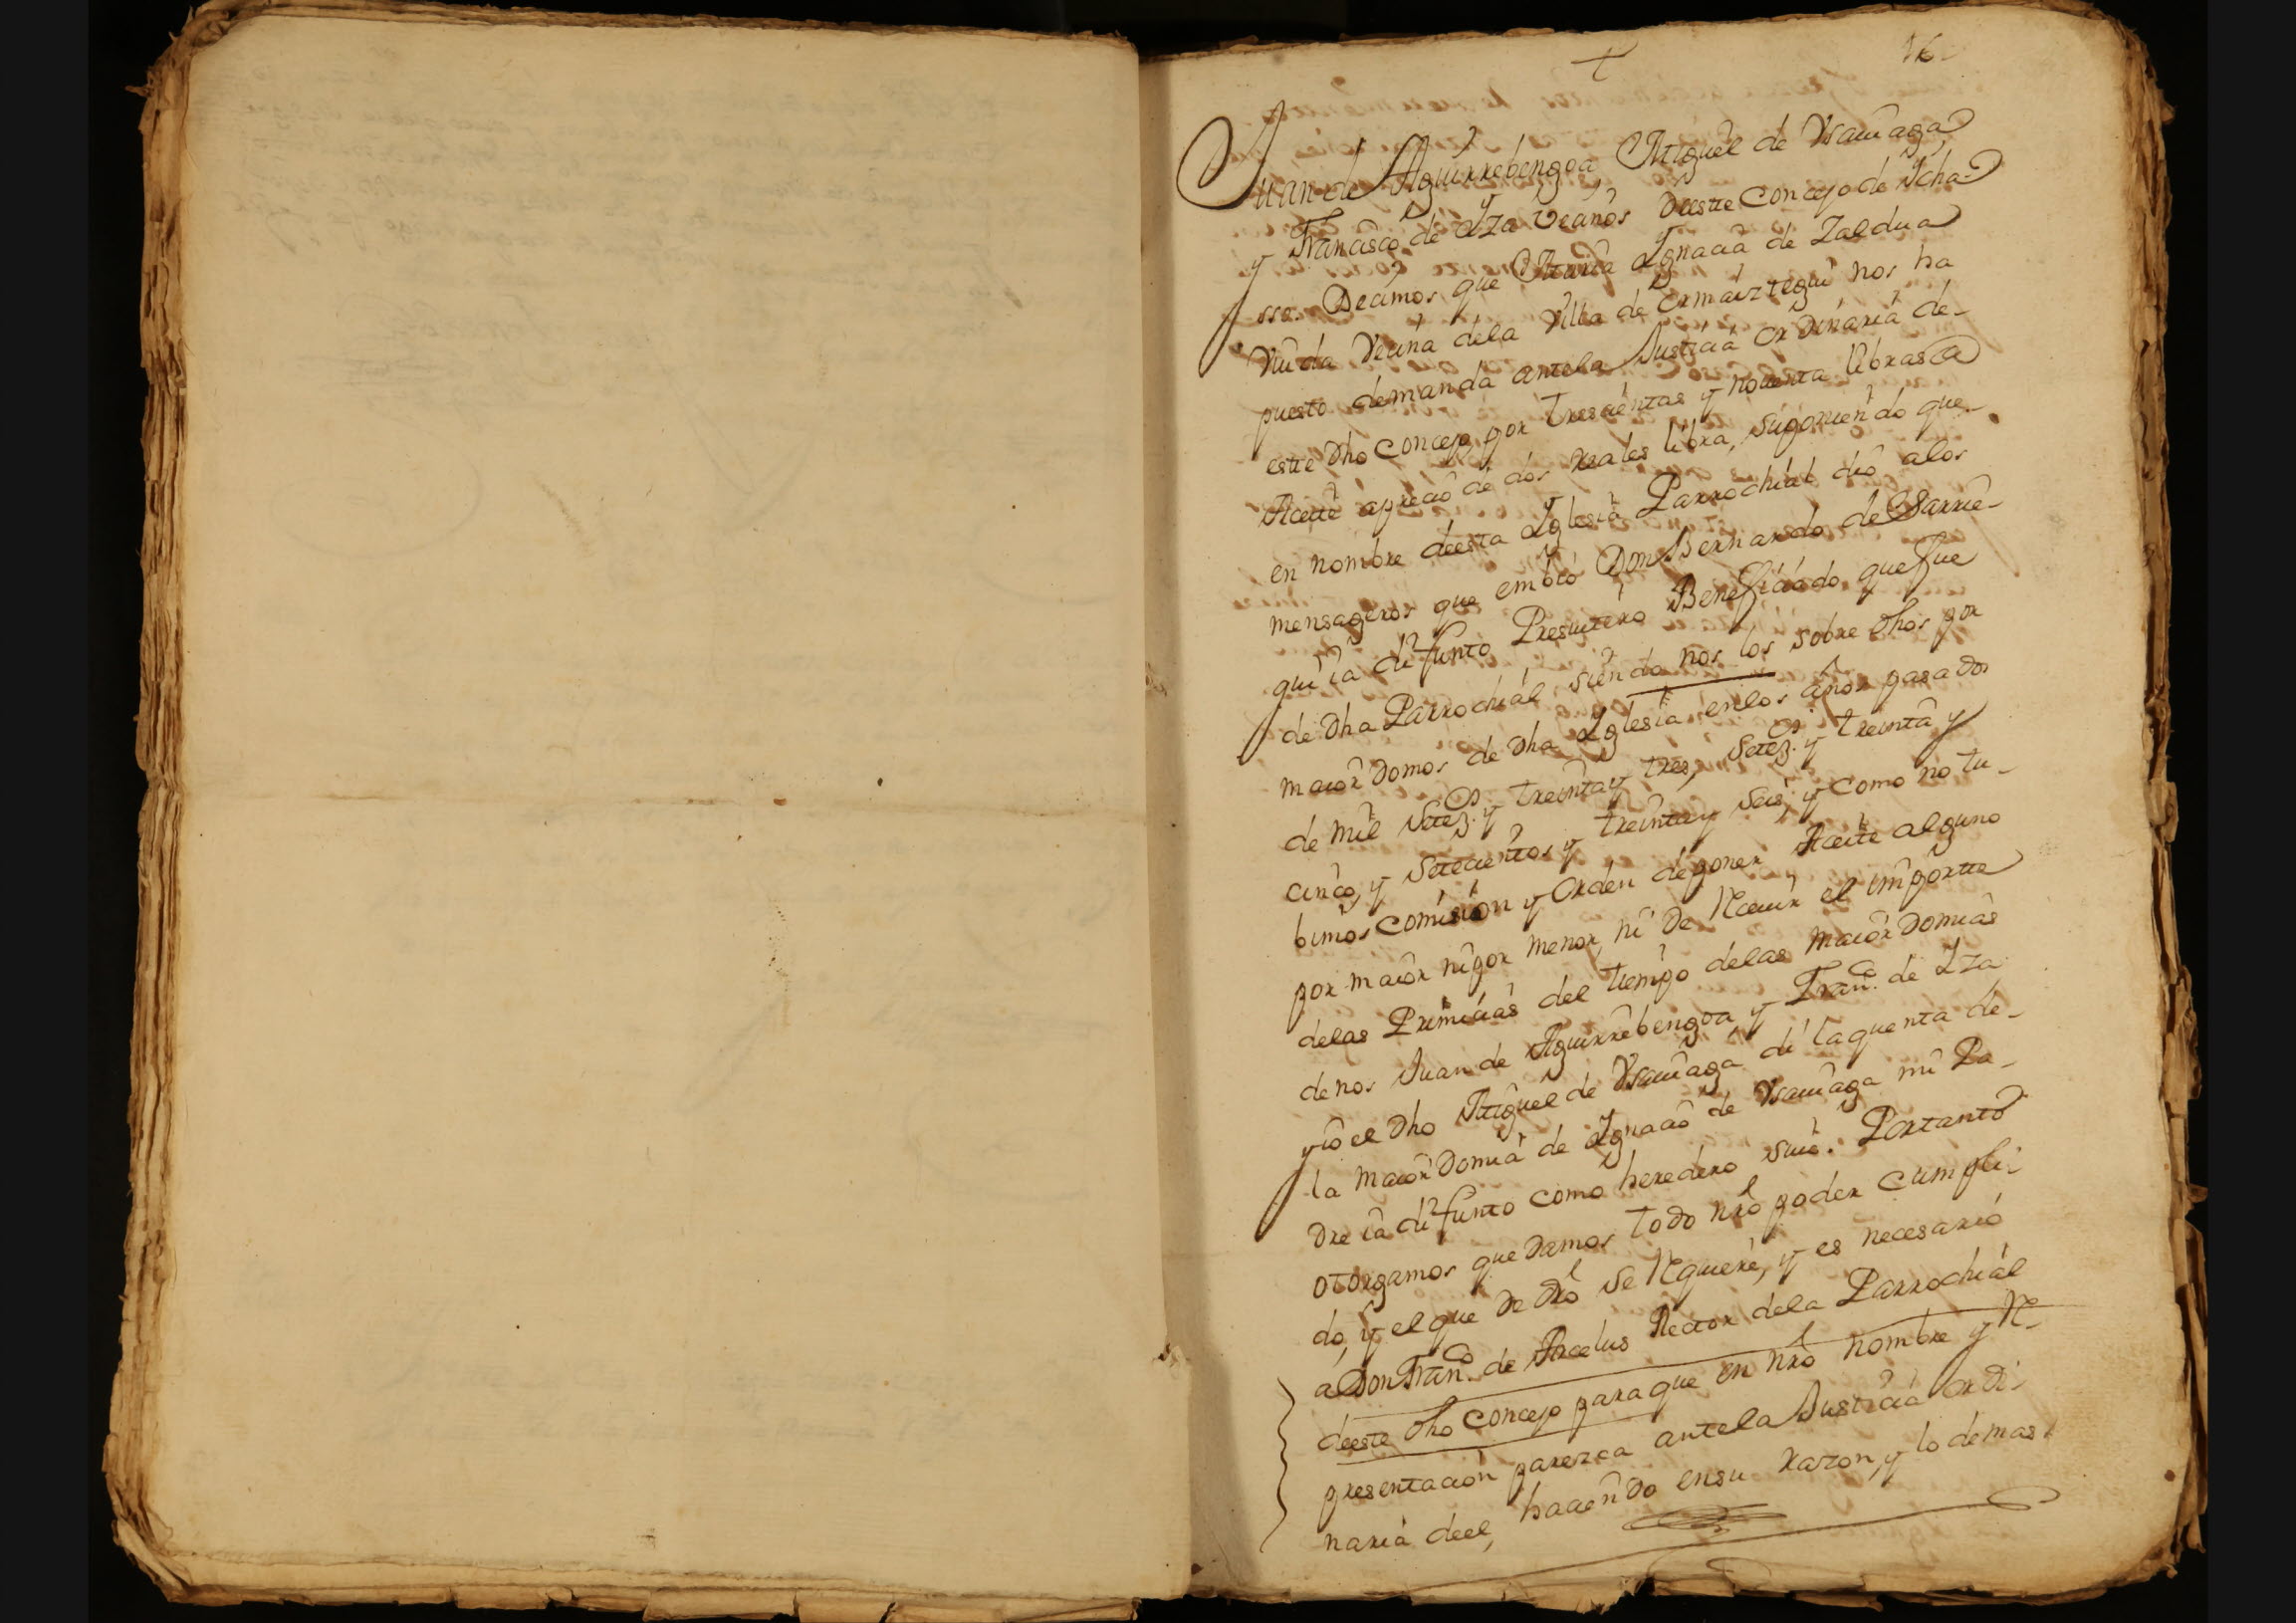 16
Juan de Aguirrebengoa Miguel de Vsauiaga
y Francisco de Yza Vecinos deeste Concejo de Ycha-
sso. Decimos que Maria Ygnacia de Zaldua
Viuda Vecina dela Villa de Ormaiztegui nos ha
puesto demanda antela Justicia Ordinaria de-
este dho Concejo por trescientas y nouenta libras
Aceite aprecio de dos reales libra, suponiendo que
en nombre deesta Yglesia Parrochial dio alos
mensageros que embio Don Bernardo de Sarrie-
guia difunto Presuitero Beneficiado que fue
de dha Parrochial, siendo nos los sobre dhos por
maiordomos de dha Yglesia enlos años pasados
de mil setez.s y treinta y tres, setez.s y treinta y
cinco, y setecientos y treinta y seis, y como no tu-
bimos comision y orden deponer Aceite alguno
por maior nipor menor, ni de Receuir el importte
delas Primicias del tiempo delas maiordomias
denos Juan de Aguirrebengoa y Fran.co de Yza
yio el dho Miguel de Vsauiaga di laquenta de-
la maiordomia de Ygnacio de Vsauiaga mi Pa-
dre ia difunto como heredero suio. Portanto
otorgamos que damos todo nro poder cumpli-
do, y el que de dro se Requiere, y es necesario
a Don Fran.co de Arcelus Rector dela Parrochial
deeste dho Concejo paraque en nro nombre y Re-
presentacion parezca antela Justicia ordi-
naria deel, haciendo ensu razon, y lo demas